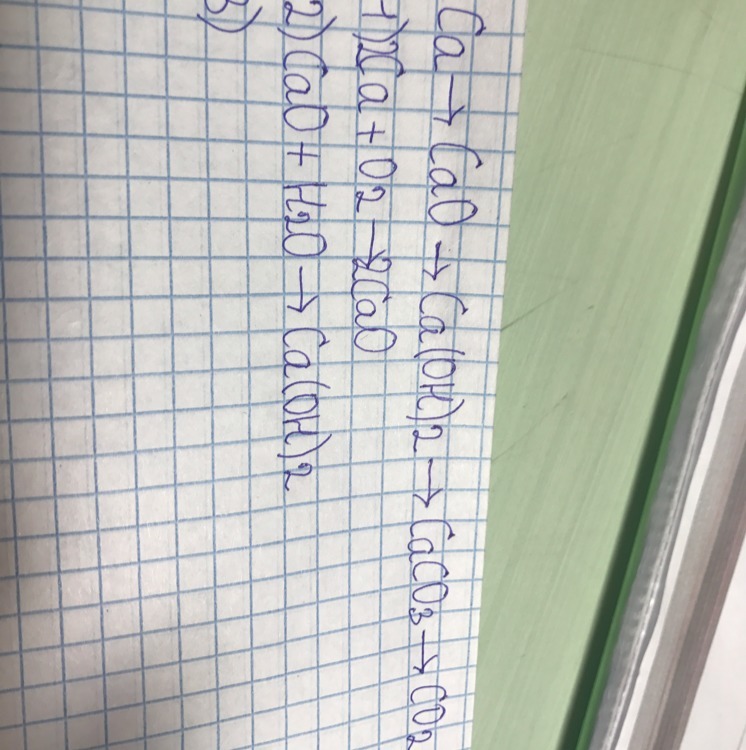 Ca → CaO → Ca(OH)2 → CaCO3 → CO2
1) 2Ca + O2 → 2CaO
2) CaO + H2O → Ca(OH)2
3)